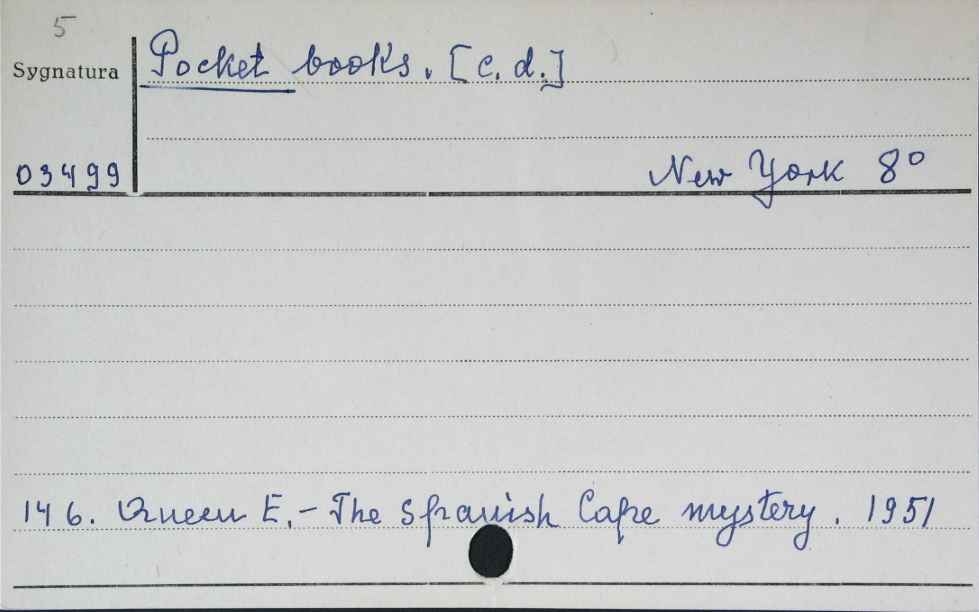 5
Sygnatura
Pocket books. [c. d.]
03499
New York 8°
146. Queen E.- The Spanish Cape mystery. 1951